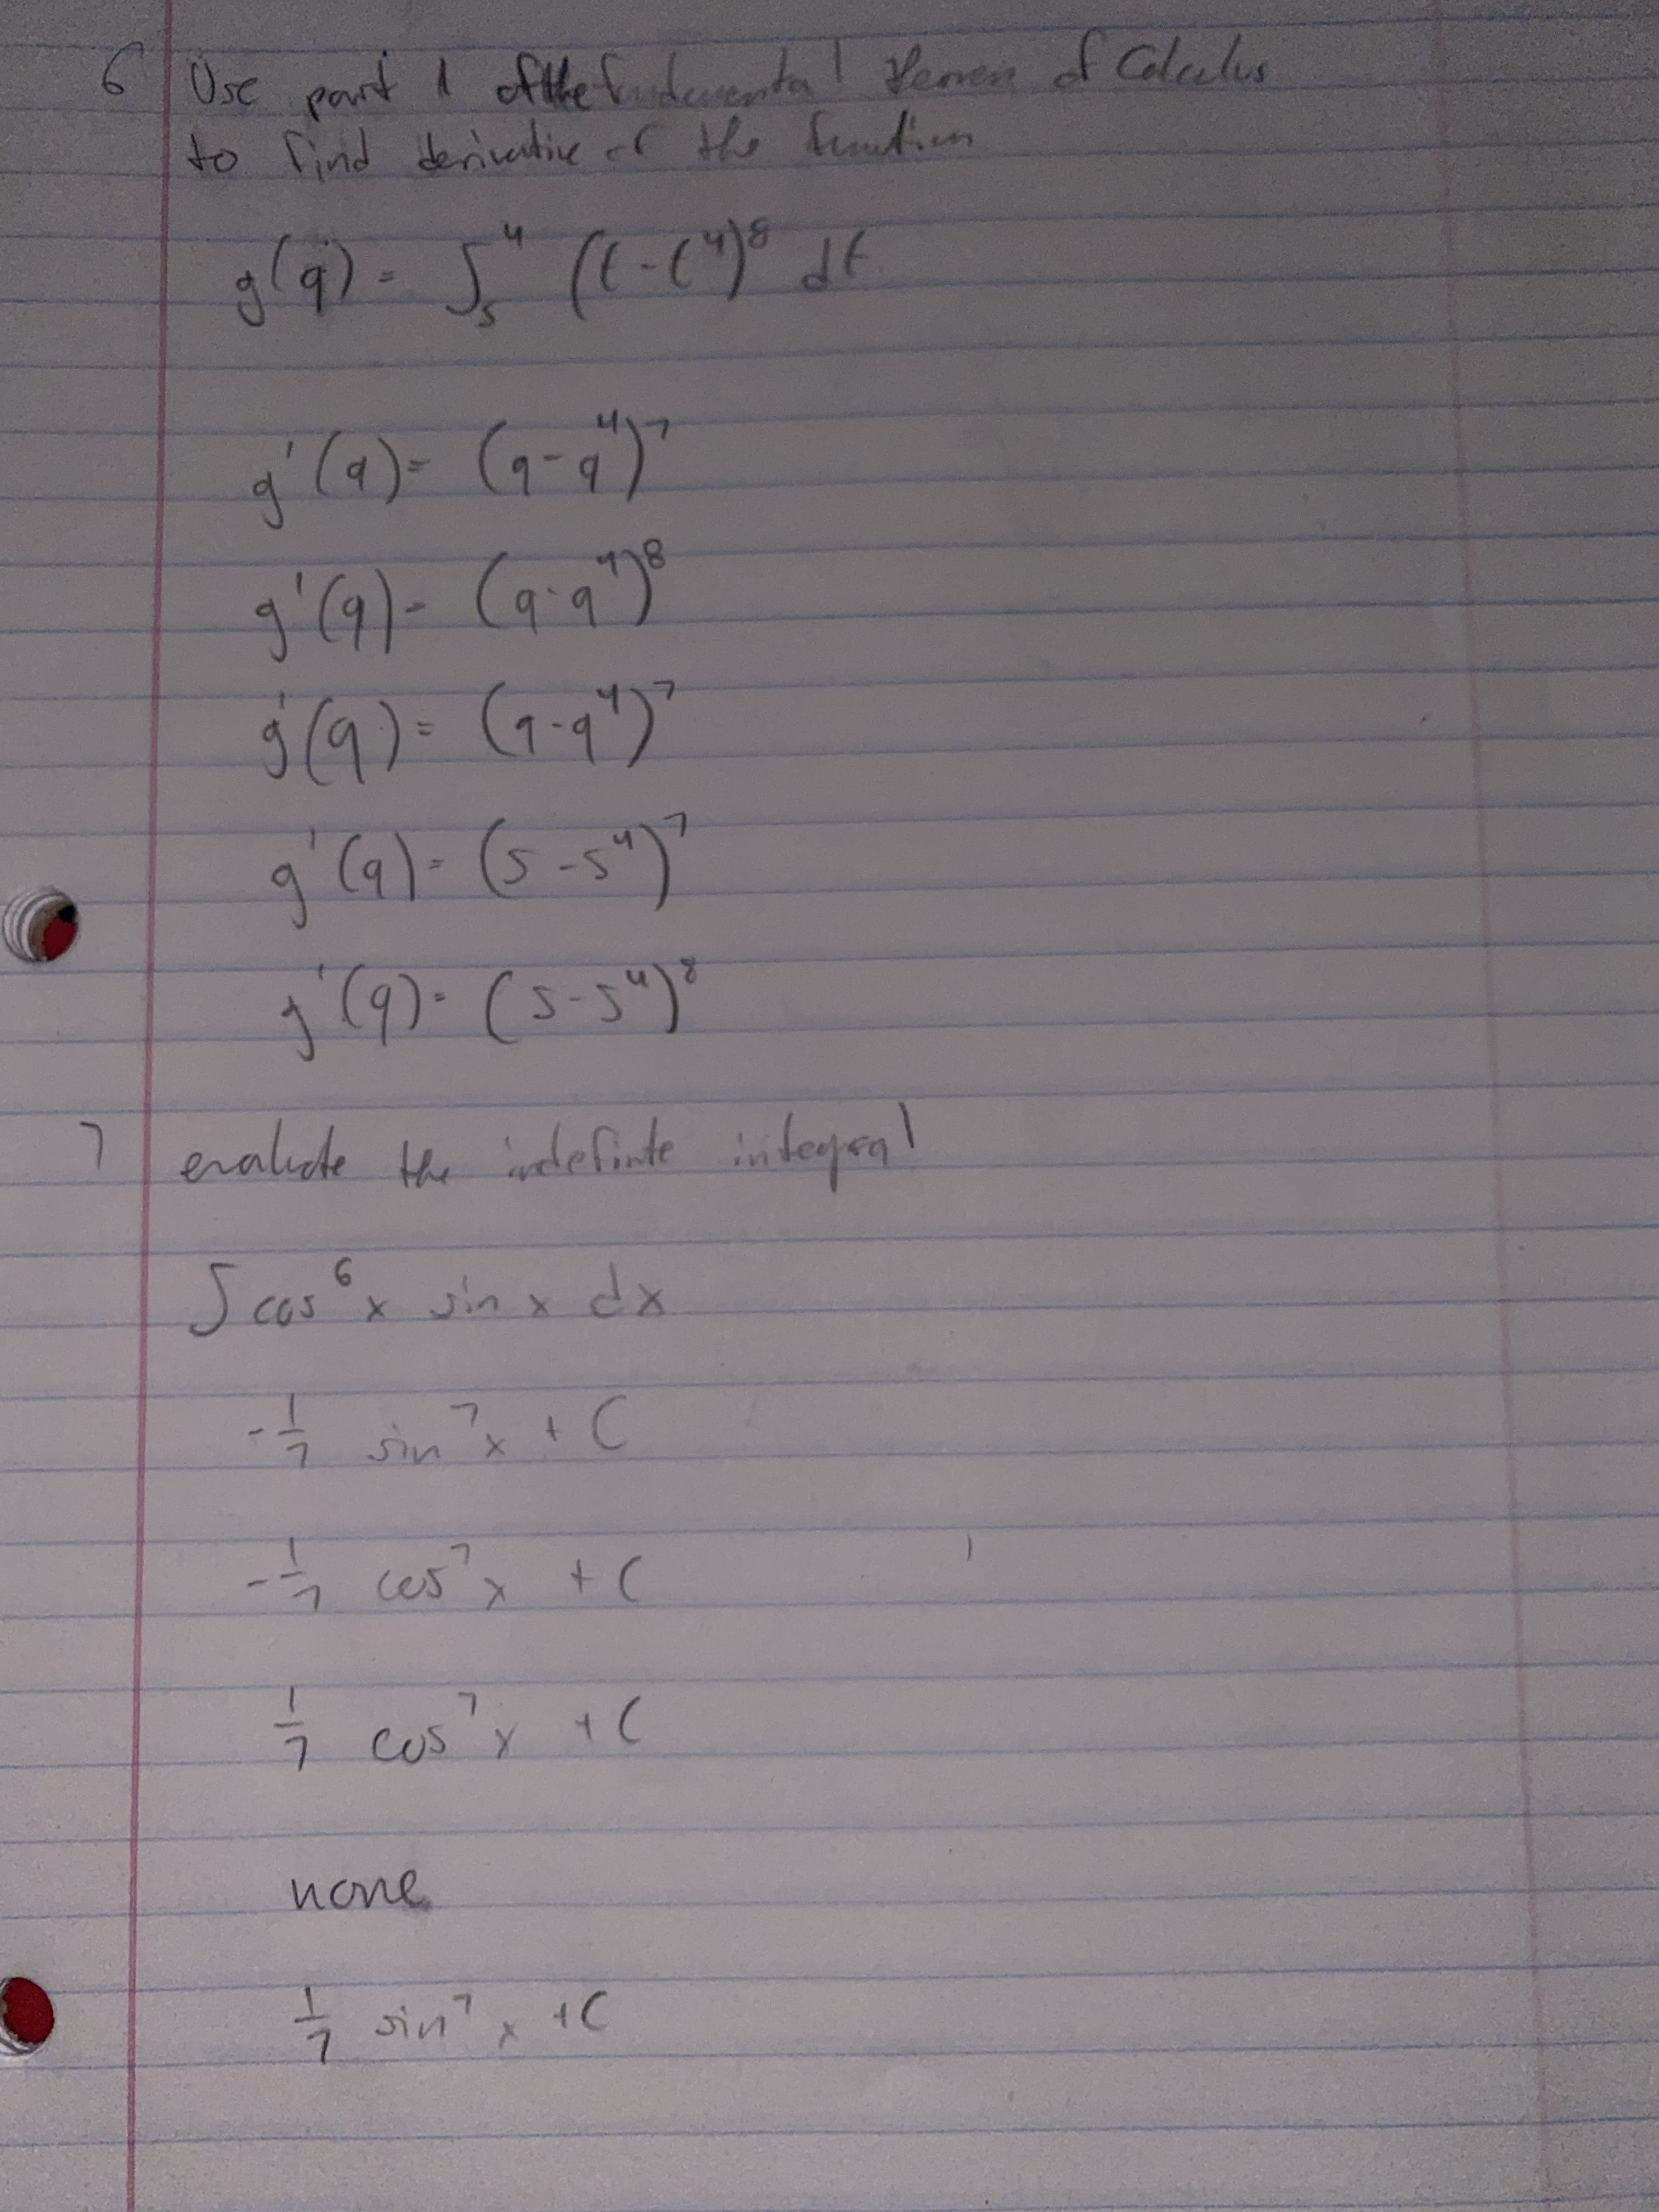 6 Use part 1 of the fundamental therem of Calculus
to find derivative of the function
g(q) = ∫₅⁴ (t - t⁴)⁸ dt
g'(q) = (q - q⁴)⁷
g'(q) = (q - q⁴)⁸
g'(q) = (q - q⁴)⁷
g'(q) = (5 - 5⁴)⁷
g'(q) = (5 - 5⁴)⁸
7 evaluate the indefinite integral
∫ cos⁶ x sin x dx
- 1/7 sin⁷ x + C
- 1/7 cos⁷ x + C
1/7 cos⁷ x + C
none
1/7 sin⁷ x + C